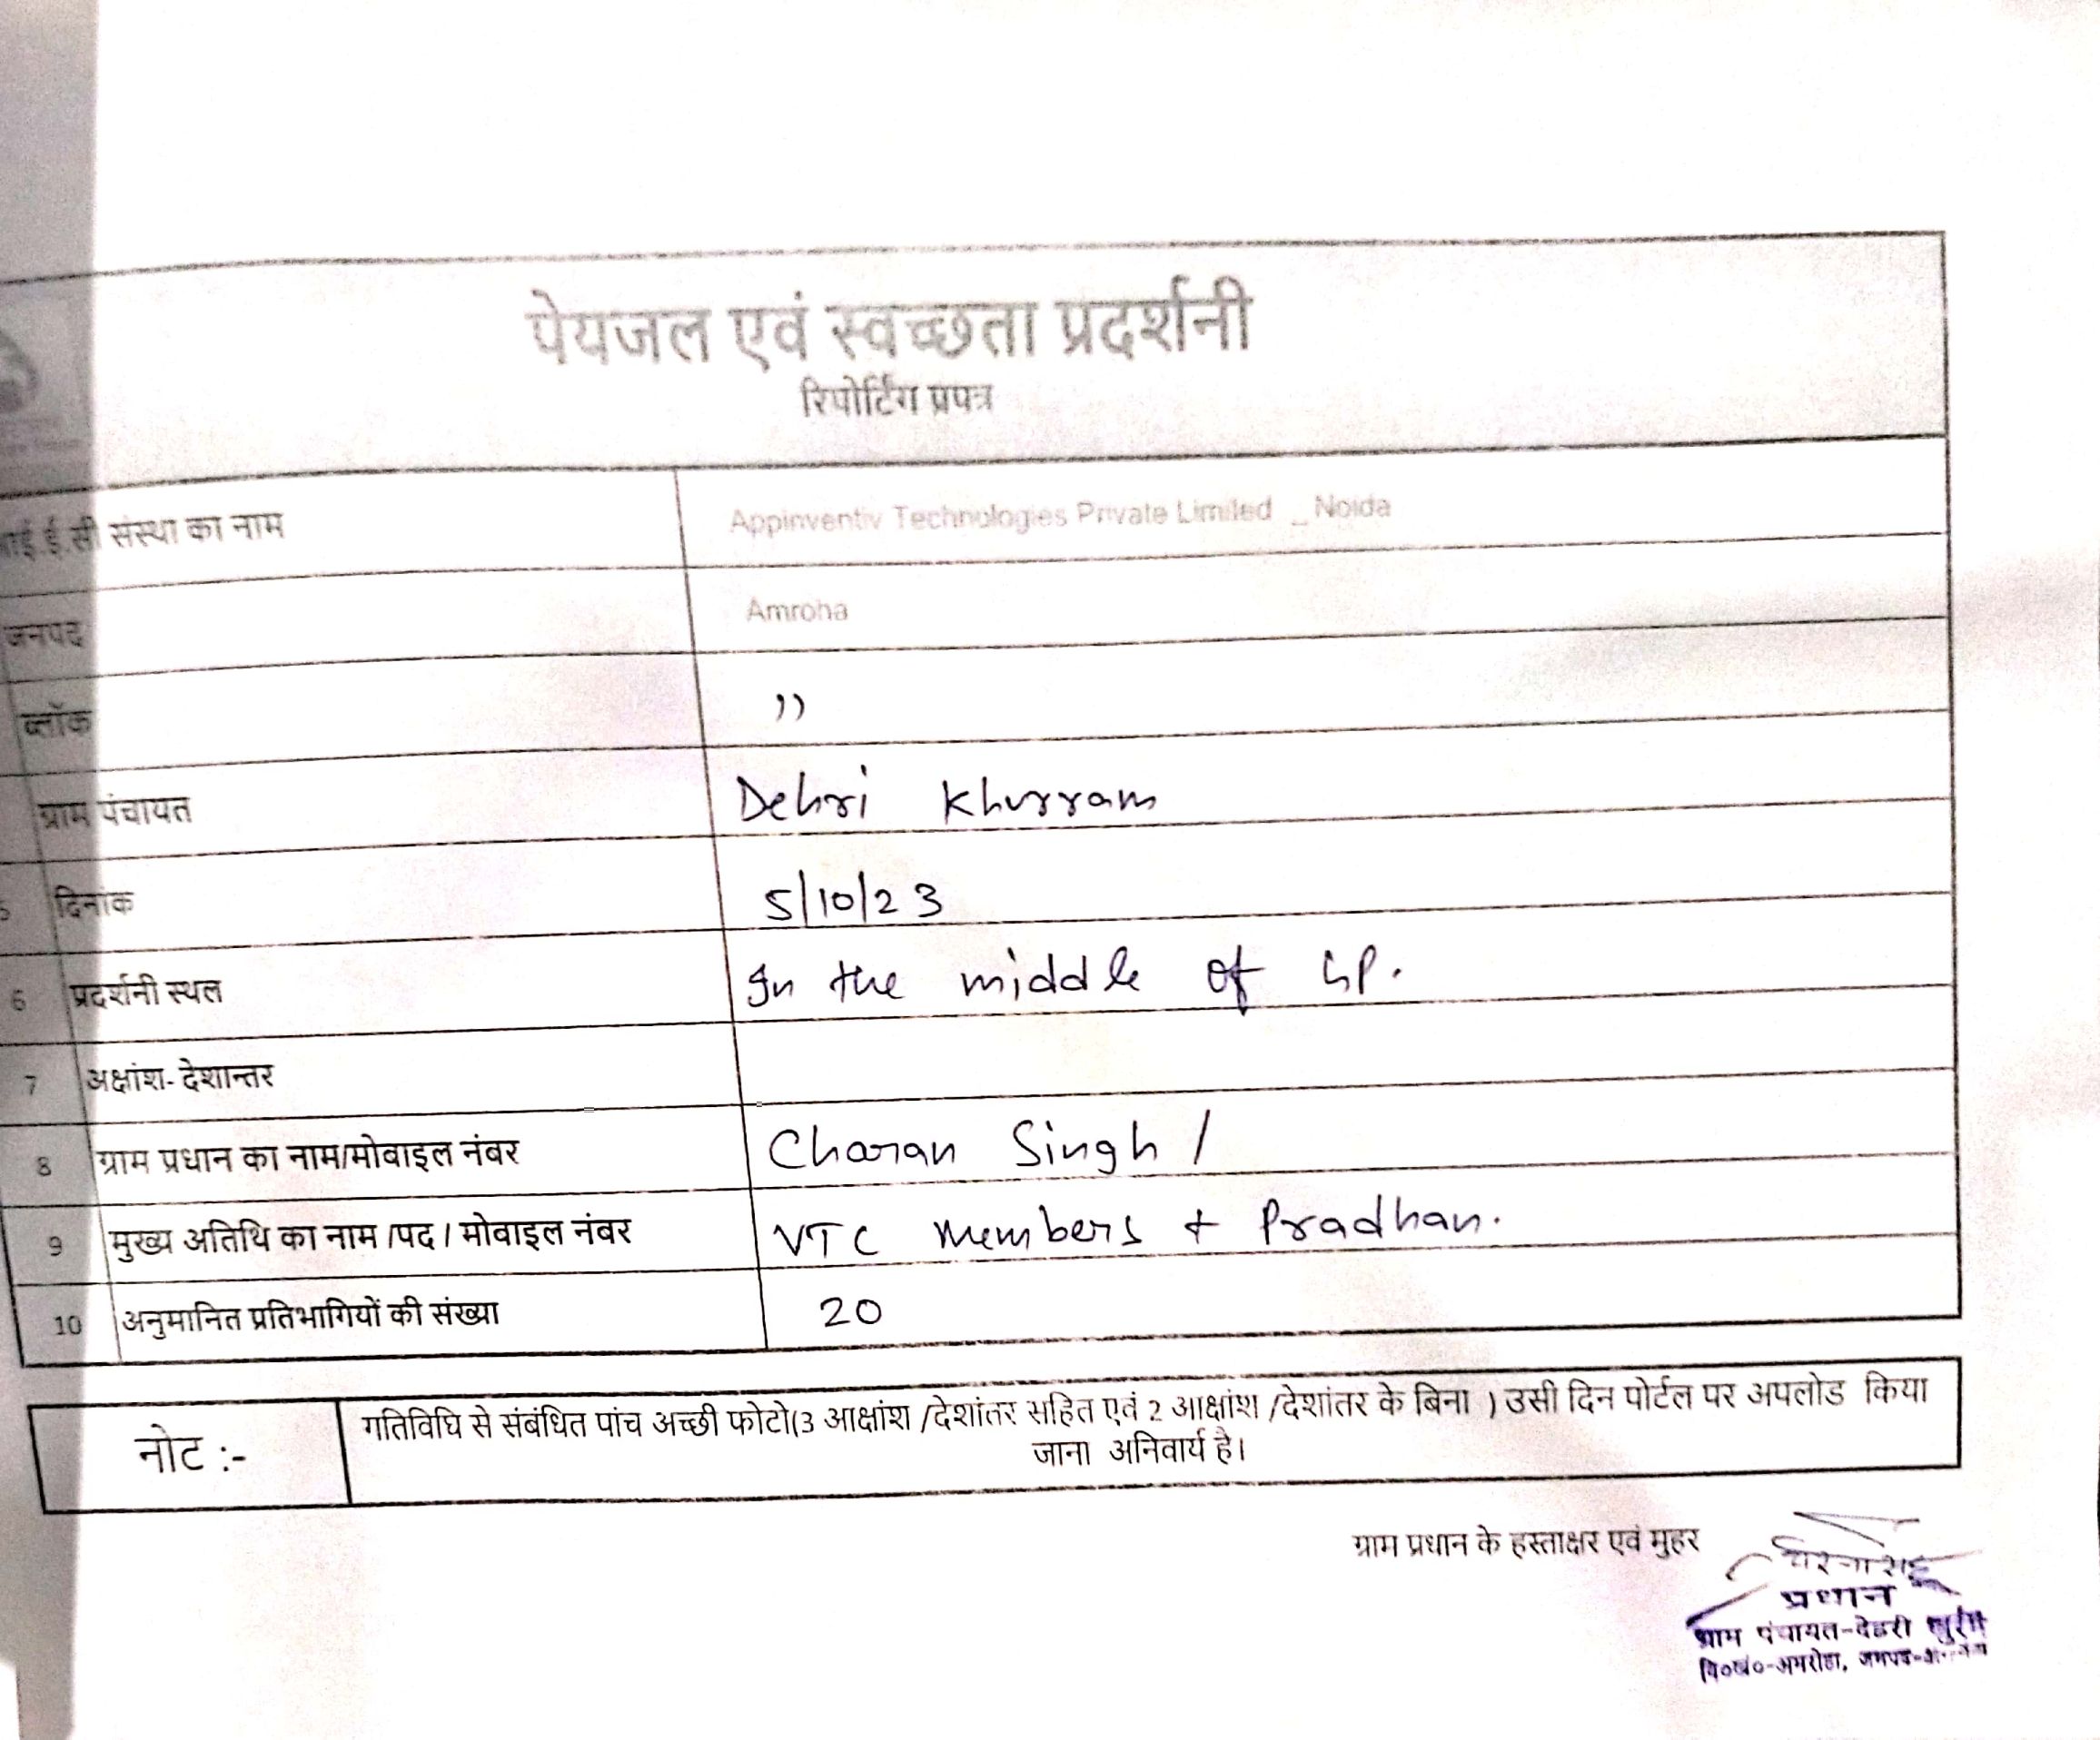 पेयजल एवं स्वच्छता प्रदर्शनी
रिपोर्टिंग प्रपत्र
आई.ई.सी संस्था का नाम Appinventiv Technologies Private Limited _ Noida
जनपद Amroha
ब्लॉक ,,
ग्राम पंचायत Dehri Khurram
5 दिनांक 5/10/23
6 प्रदर्शनी स्थल In the middle of GP.
7 अक्षांश- देशान्तर
8 ग्राम प्रधान का नाम/मोबाइल नंबर Charan Singh /
9 मुख्य अतिथि का नाम /पद / मोबाइल नंबर VTC Members + Pradhan.
10 अनुमानित प्रतिभागियों की संख्या 20
नोट :- गतिविधि से संबंधित पांच अच्छी फोटो(3 आक्षांश /देशांतर सहित एवं 2 आक्षांश /देशांतर के बिना ) उसी दिन पोर्टल पर अपलोड किया
जाना अनिवार्य है।
ग्राम प्रधान के हस्ताक्षर एवं मुहर
प्रधान
ग्राम पंचायत-देहरी खुर्रम
वि०खं०-अमरोहा, जनपद-